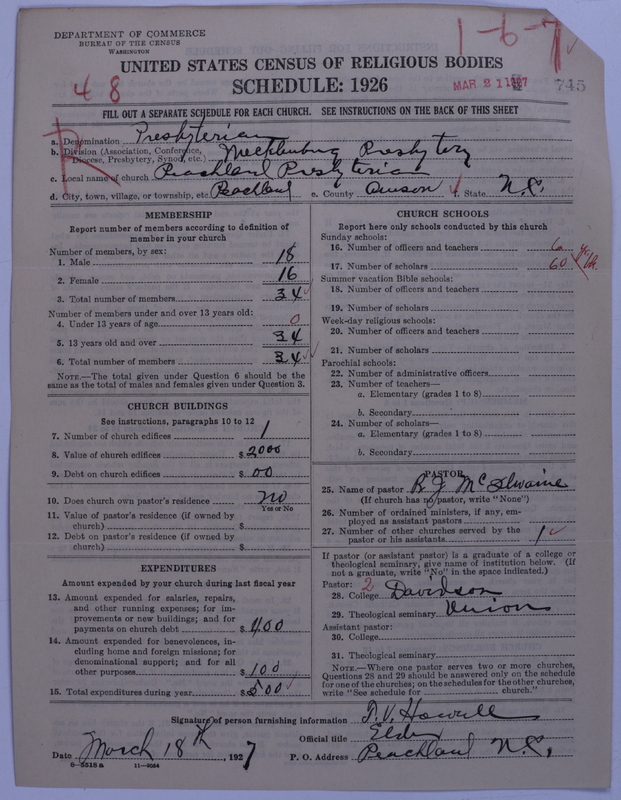 DEPARTMENT OF COMMERCE
BUREAU OF THE CENSUS
WASHINGTON
1-6-7
UNITED STATES CENSUS OF RELIGIOUS BODIES
48
SCHEDULE: 1926
MAR 21 1927
745
FILL OUT A SEPARATE SCHEDULE FOR EACH CHURCH. SEE INSTRUCTIONS ON THE BACK OF THIS SHEET
R
a. Denomination Presbyterian
b. Division (Association, Conference, Diocese, Presbytery, Synod, etc.) Mecklenburg Presbytery
c. Local name of church Peachland Presbyterian
d. City, town, village, or township, etc. Peachland e. County Anson f. State N.C.
MEMBERSHIP
Report number of members according to definition of
member in your church
Number of members, by sex:
1. Male 18
2. Female 16
3. Total number of members 34
Number of members under and over 13 years old:
4. Under 13 years of age 0
5. 13 years old and over 34
6. Total number of members 34
NOTE.—The total given under Question 6 should be
the same as the total of males and females given under Question 3.
CHURCH BUILDINGS
See instructions, paragraphs 10 to 12
7. Number of church edifices 1
8. Value of church edifices $ 2000
9. Debt on church edifices $ 00
10. Does church own pastor's residence no
Yes or No
11. Value of pastor's residence (if owned by
church) $
12. Debt on pastor's residence (if owned by
church) $
EXPENDITURES
Amount expended by your church during last fiscal year
13. Amount expended for salaries, repairs,
and other running expenses; for im-
provements or new buildings; and for
payments on church debt $ 400
14. Amount expended for benevolences, in-
cluding home and foreign missions; for
denominational support; and for all
other purposes $ 100
15. Total expenditures during year $ 500
CHURCH SCHOOLS
Report here only schools conducted by this church
Sunday schools:
16. Number of officers and teachers 6
17. Number of scholars 60
Summer vacation Bible schools:
18. Number of officers and teachers
19. Number of scholars
Week-day religious schools:
20. Number of officers and teachers
21. Number of scholars
Parochial schools:
22. Number of administrative officers
23. Number of teachers—
a. Elementary (grades 1 to 8)
b. Secondary
24. Number of scholars—
a. Elementary (grades 1 to 8)
b. Secondary
PASTOR
25. Name of pastor R. J. McIlwaine
(If church has no pastor, write "None")
26. Number of ordained ministers, if any, em-
ployed as assistant pastors
27. Number of other churches served by the
pastor or his assistants 1
If pastor (or assistant pastor) is a graduate of a college or
theological seminary, give name of institution below. (If
not a graduate, write "No" in the space indicated.)
Pastor: 2
28. College Davidson
29. Theological seminary Union
Assistant pastor:
30. College
31. Theological seminary
NOTE.—Where one pastor serves two or more churches,
Questions 28 and 29 should be answered only on the schedule
for one of the churches; on the schedules for the other churches,
write "See schedule for church."
Signature of person furnishing information T. V. Howell
Official title Elder
Date March 18th, 1927
P. O. Address Peachland N.C.
8-5518a 11-9054